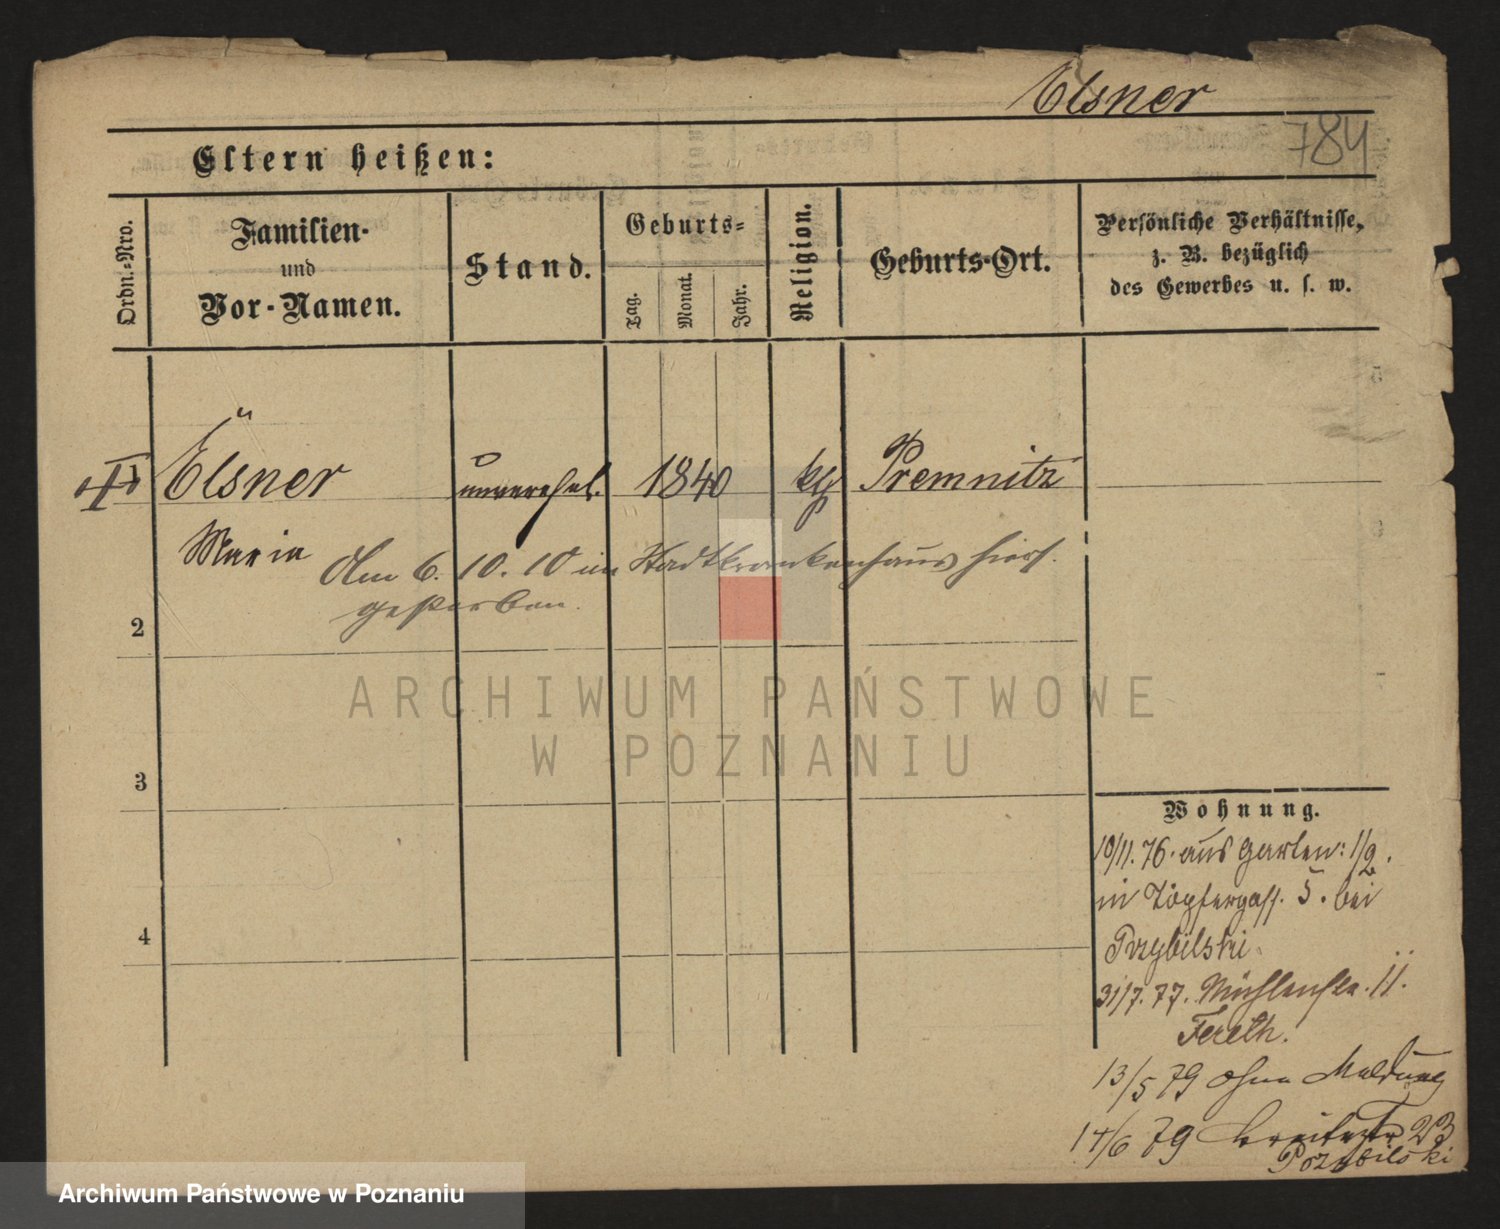 Elsner
784
Eltern heißen:
Ordn.-Nro.
Familien-
und
Vor-Namen.
Stand.
Geburts-
Tag.
Monat.
Jahr.
Religion.
Geburts-Ort.
Persönliche Verhältnisse,
z. B. bezüglich
des Gewerbes u. s. w.
Elsner unverehel. 1840 kg Premnitz
Maria
Am 6. 10. 10 im Stadtkrankenhaus hiers.
gestorben.
2
3
4
ARCHIWUM PAŃSTWOWE
W POZNANIU
Wohnung.
10/11. 76. aus Garten: 1/2.
in Töpfergass. 5. bei
Przybilski.
31/7. 77. Mühlenstr. 11.
Fereth.
13/5 79 ohne Meldung
14/6 79 Breitestr 23
Przybilski
Archiwum Państwowe w Poznaniu